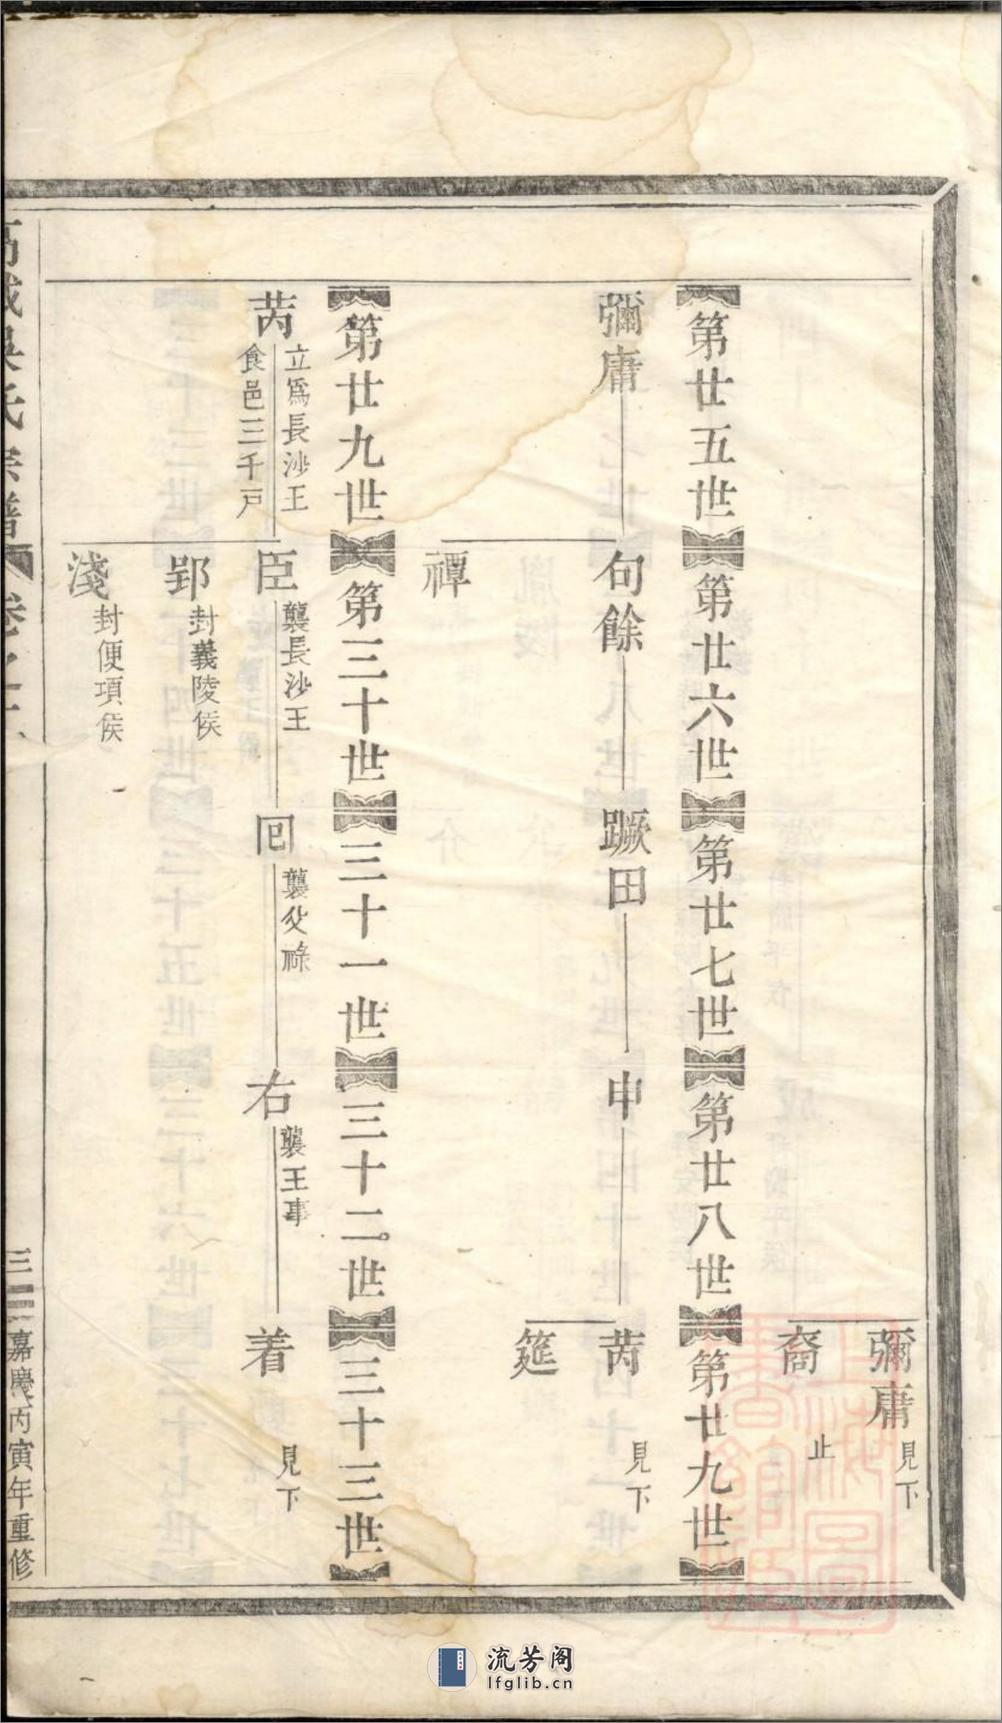 彌庸 見下
裔 止
第廿五世 第廿六世 第廿七世 第廿八世 第廿九世
彌庸 句餘 蹶田 申 芮 見下
禫 筵
第廿九世 第三十世 三十一世 三十二世 三十三世
芮 立爲長沙王 食邑三千戸 臣 襲長沙王 回 襲父祿 右 襲王事 着 見下
郢 封義陵侯
淺 封便項侯
吳氏宗譜 卷之 三 嘉慶丙寅年重修
流芳阁
lfglib.cn